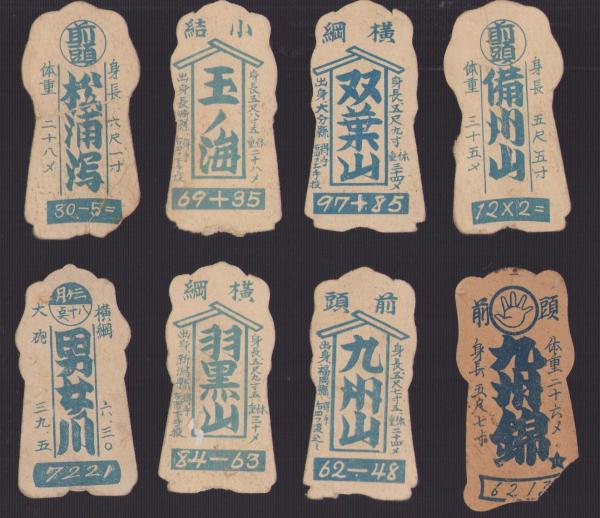 前頭
身長 六尺一寸
松浦潟
体重 二十八メ
30-5=
小結
身長五尺八寸五
体重二十八メ
玉ノ海
出身長崎縣
69+35
横綱
身長五尺九寸
体重三十四メ
双葉山
出身大分縣
97+85
前頭
身長 五尺五寸
備州山
体重 三十五メ
12×2=
二月
八十点
横綱 六・三〇
男女川
大砲 三九・五
7221
横綱
身長五尺九寸五
体重三十メ
羽黒山
出身新潟縣
84-63
前頭
身長五尺七寸五
体重二十四メ
九州山
出身福岡縣
62-48
前頭
体重 二十六メ
九州錦
身長 五尺七寸
621